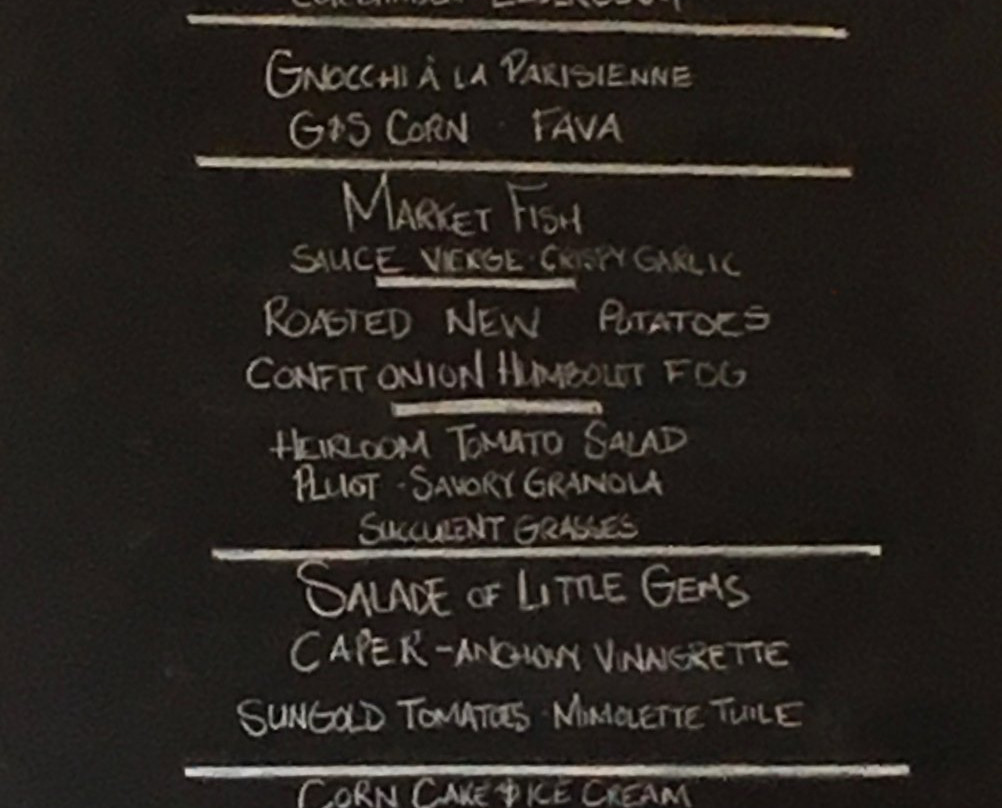 GNOCCHI À LA PARISIENNE
G&S CORN · FAVA
MARKET FISH
SAUCE VIERGE · CRISPY GARLIC
ROASTED NEW POTATOES
CONFIT ONION HUMBOLDT FOG
HEIRLOOM TOMATO SALAD
PLUOT · SAVORY GRANOLA
SUCCULENT GRASSES
SALADE OF LITTLE GEMS
CAPER-ANCHOVY VINAIGRETTE
SUNGOLD TOMATOES · MIMOLETTE TUILE
CORN CAKE & ICE CREAM